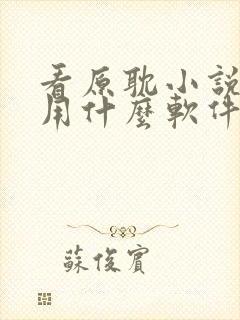 看原耽小説
用什麼軟件
蘇俊賓